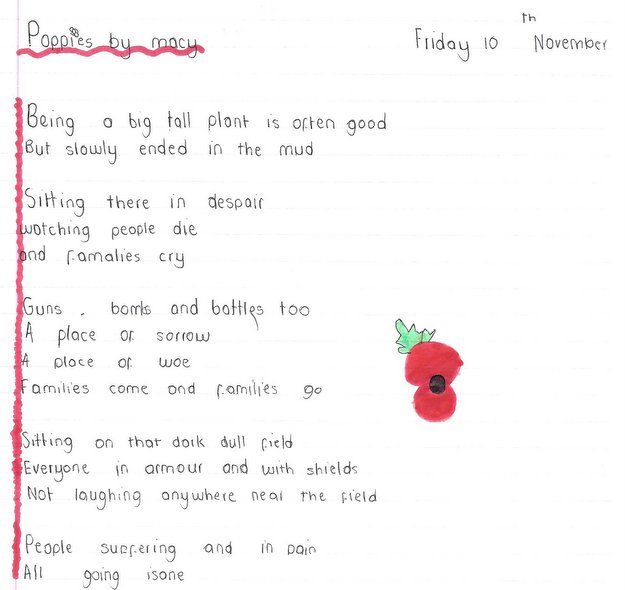 Poppies by macy
Friday 10th November
Being a big tall plant is often good
But slowly ended in the mud
Sitting there in despair
watching people die
and famalies cry
Guns , bombs and battles too
A place of sorrow
A place of woe
Families come and families go
Sitting on that dark dull field
Everyone in armour and with shields
Not laughing anywhere near the field
People suffering and in pain
All going isane